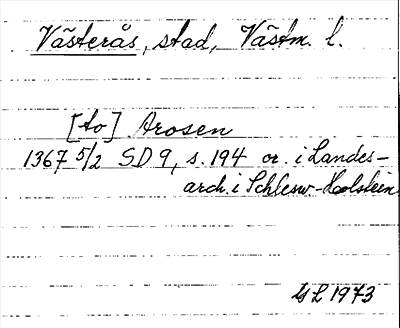 Västerås, stad, Västm. l.
[to] Arosen
1367 5/2 SD 9, s. 194 or. i Landes-
arch. i Schlesw-Holstein
GL 1973